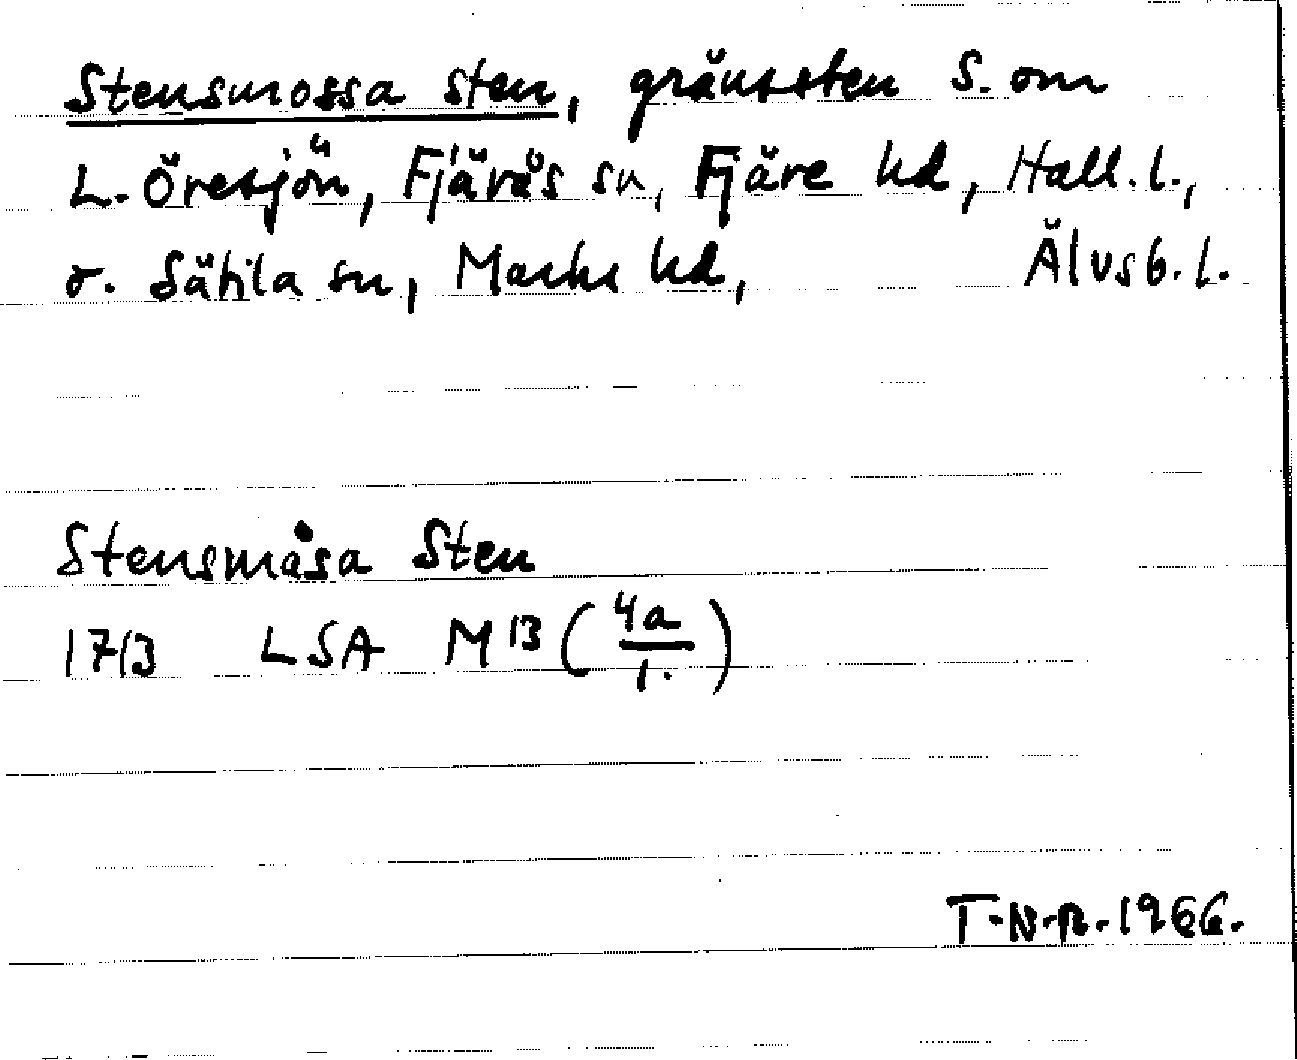 Stensmossa sten, gränssten S. om
L. Öresjön, Fjärås sn, Fjäre hd, Hall. l.,
o. Sätila sn, Marks hd, Älvsb. l.
Stensmåsa Sten
1713 LSA M13 (4a/1.)
T.N.R. 1966.